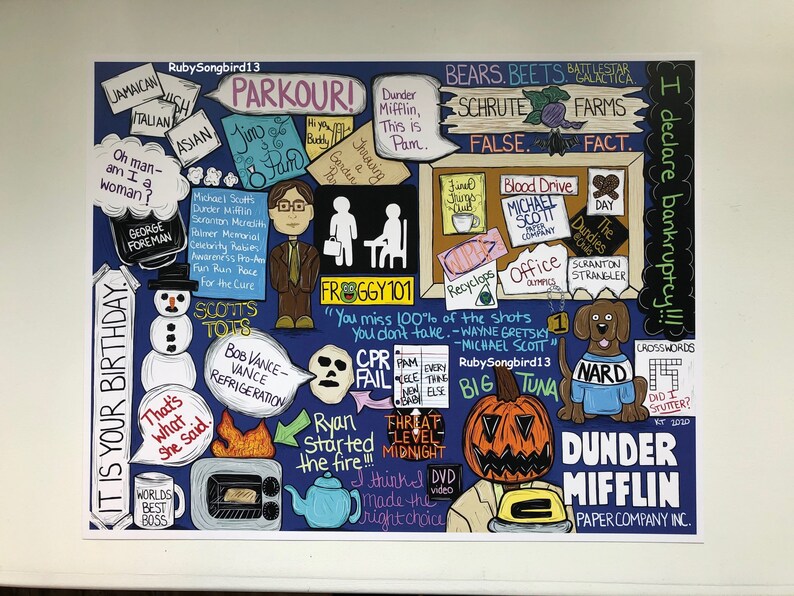 RubySongbird13
JAMAICAN
ISH
ITALIAN
ASIAN
PARKOUR!
Dunder
Mifflin,
This is
Pam.
BEARS. BEETS. BATTLESTAR
GALACTICA.
SCHRUTE FARMS
FALSE. FACT.
I declare bankruptcy!!!
Jim &
Pam
Hi ya,
Buddy
Throwing
a
Garden
Par
Oh man-
am I a
woman?
GEORGE
FOREMAN
Michael Scott's
Dunder Mifflin
Scranton Meredith
Palmer Memorial
Celebrity Rabies
Awareness Pro-Am
Fun Run Race
For the Cure
FROGGY101
Finer
Things
Club
Blood Drive
MICHAEL
SCOTT
PAPER
COMPANY
DAY
The
Dundies
@Chilis
WUPHF
Recyclops
Office
OLYMPICS
SCRANTON
STRANGLER
IT IS YOUR BIRTHDAY.
SCOTT'S
TOTS
"You miss 100% of the shots
you dont take. -WAYNE GRETSKY
-MICHAEL SCOTT"
1
RubySongbird13
BOB VANCE-
VANCE
REFRIGERATION
CPR
FAIL
PAM
CECE
NEW
BABY
EVERY
THING
ELSE
BIG TUNA
NARD
CROSSWORDS
DID I
STUTTER?
KT 2020
That's
what
she
said.
Ryan
Started
the fire!!!
THREAT
LEVEL
MIDNIGHT
WORLDS
BEST
BOSS
I think I
made the
right choice
DVD
video
DUNDER
MIFFLIN
PAPER COMPANY INC.